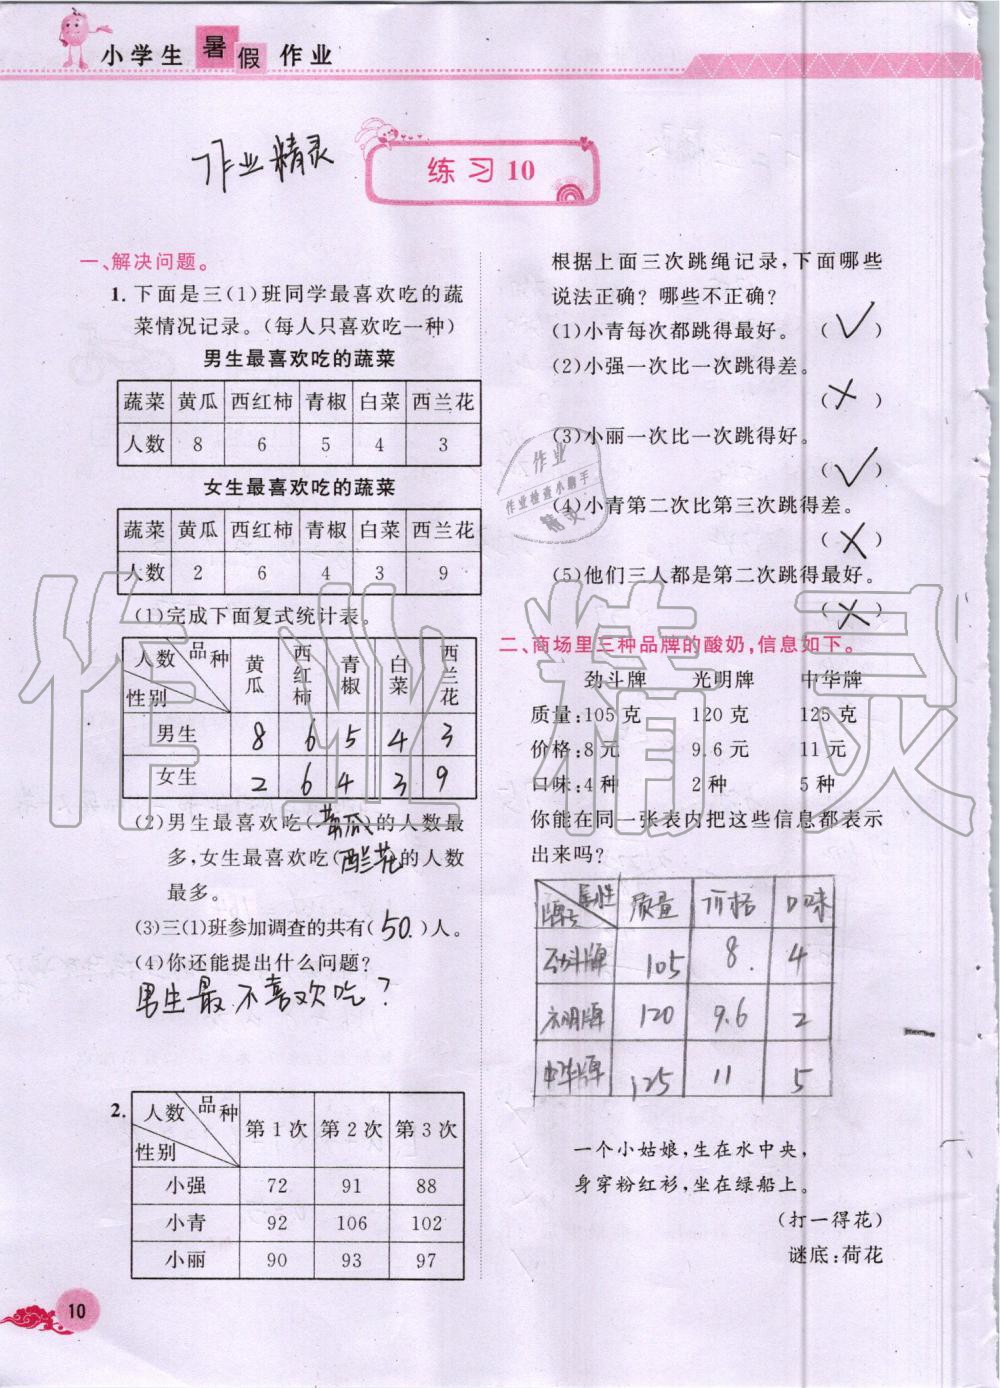 小学生暑假作业
作业精灵
练习10
一、解决问题。
1. 下面是三(1)班同学最喜欢吃的蔬
菜情况记录。(每人只喜欢吃一种)
男生最喜欢吃的蔬菜
蔬菜 黄瓜 西红柿 青椒 白菜 西兰花
人数 8 6 5 4 3
女生最喜欢吃的蔬菜
蔬菜 黄瓜 西红柿 青椒 白菜 西兰花
人数 2 6 4 3 9
(1)完成下面复式统计表。
人数 品种 性别 黄瓜 西红柿 青椒 白菜 西兰花
男生 8 6 5 4 3
女生 2 6 4 3 9
(2)男生最喜欢吃(黄瓜)的人数最
多,女生最喜欢吃(西兰花)的人数
最多。
(3)三(1)班参加调查的共有(50.)人。
(4)你还能提出什么问题?
男生最不喜欢吃?
2. 人数 品种 性别 第1次 第2次 第3次
小强 72 91 88
小青 92 106 102
小丽 90 93 97
10
根据上面三次跳绳记录,下面哪些
说法正确? 哪些不正确?
(1)小青每次都跳得最好。 (✓)
(2)小强一次比一次跳得差。
(×)
(3)小丽一次比一次跳得好。
(✓)
(4)小青第二次比第三次跳得差。
(×)
(5)他们三人都是第二次跳得最好。
(×)
二、商场里三种品牌的酸奶,信息如下。
劲斗牌 光明牌 中华牌
质量:105克 120克 125克
价格:8元 9.6元 11元
口味:4种 2种 5种
你能在同一张表内把这些信息都表示
出来吗?
属性 质量 价格 口味
劲斗牌 105 8. 4
光明牌 120 9.6 2
中华牌 125 11 5
一个小姑娘,生在水中央,
身穿粉红衫,坐在绿船上。
(打一得花)
谜底:荷花
作业
作业检查小助手
精灵
作业精灵